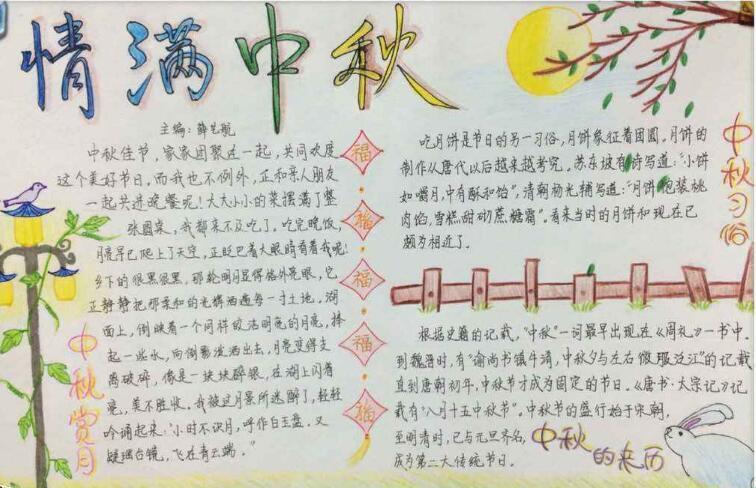 情满中秋
主编：薛艺航
中秋佳节，家家团聚在一起，共同欢度
这个美好节日。而我也不例外，正和家人朋友
一起共进晚餐呢！大大小小的菜摆满了整
张圆桌，我都来不及吃了。吃完晚饭，
月亮早已爬上了天空，正眨巴着大眼睛看着我呢！
乡下的夜黑很黑，那轮明月显得格外亮眼，它
正静静把那柔和的光辉洒遍每一寸土地。湖
面上，倒映着一个同样皎洁明亮的月亮，捧
起一些水，向倒影泼洒出去，月亮变得支
离破碎，像是一块块碎银，在湖上闪着
亮，美不胜收。我被这月景所迷醉了，轻轻
吟诵起来："小时不识月，呼作白玉盘。又
疑瑶台镜，飞在青云端。"
中秋赏月
福
福
福
福
福
吃月饼是节日的另一习俗，月饼象征着团圆。月饼的
制作从唐代以后越来越考究。苏东坡有诗写道："小饼
如嚼月，中有酥和饴"，清朝杨光辅写道："月饼包装桃
肉馅，雪糕甜砌蔗糖霜"。看来当时的月饼和现在已
颇为相近了。
中秋习俗
根据史籍的记载，"中秋"一词最早出现在《周礼》一书中。
到魏晋时，有"谕尚书镇牛渚，中秋夕与左右微服泛江"的记载
直到唐朝初年，中秋节才成为固定的节日。《唐书·太宗记》记
载有"八月十五中秋节"。中秋节的盛行始于宋朝，
至明清时，已与元旦齐名，
成为第二大传统节日。
中秋的来历